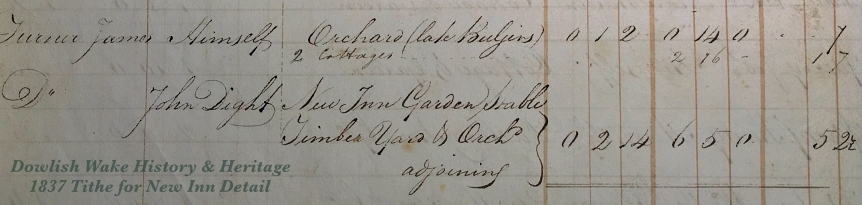 Turner James Himself Orchard (late Bulgins) 0 1 2 0 14 0 . . 7
2 Cottages 2 16 - 1 7
Do John Dight New Inn Garden, Stable
Timber Yard & Orchd 0 2 14 6 5 0 5 2½
adjoining
Dowlish Wake History & Heritage
1837 Tithe for New Inn Detail